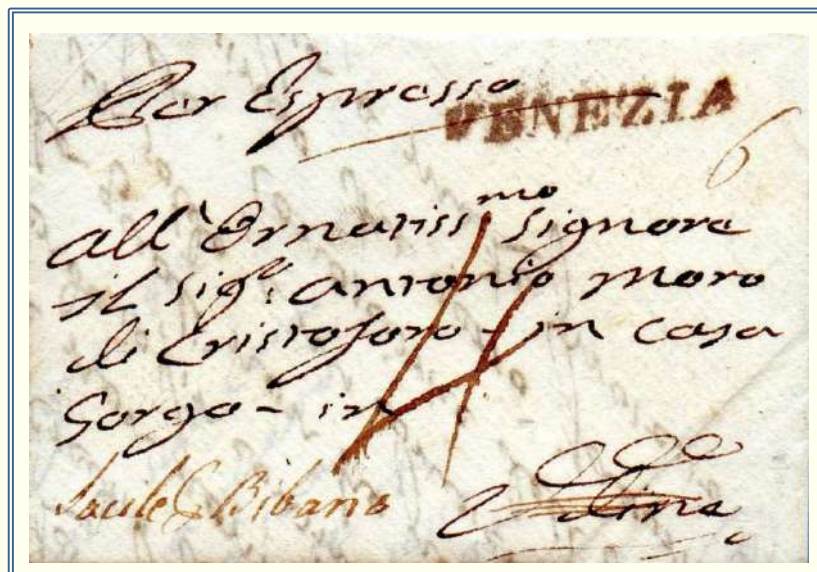 Per Espresso
VENEZIA
6
All'Ornatiss.mo Signore
il Sig.r Antonio Moro
di Cristoforo - in casa
Gorgo - in
4
Sacile & Bibano
Udine